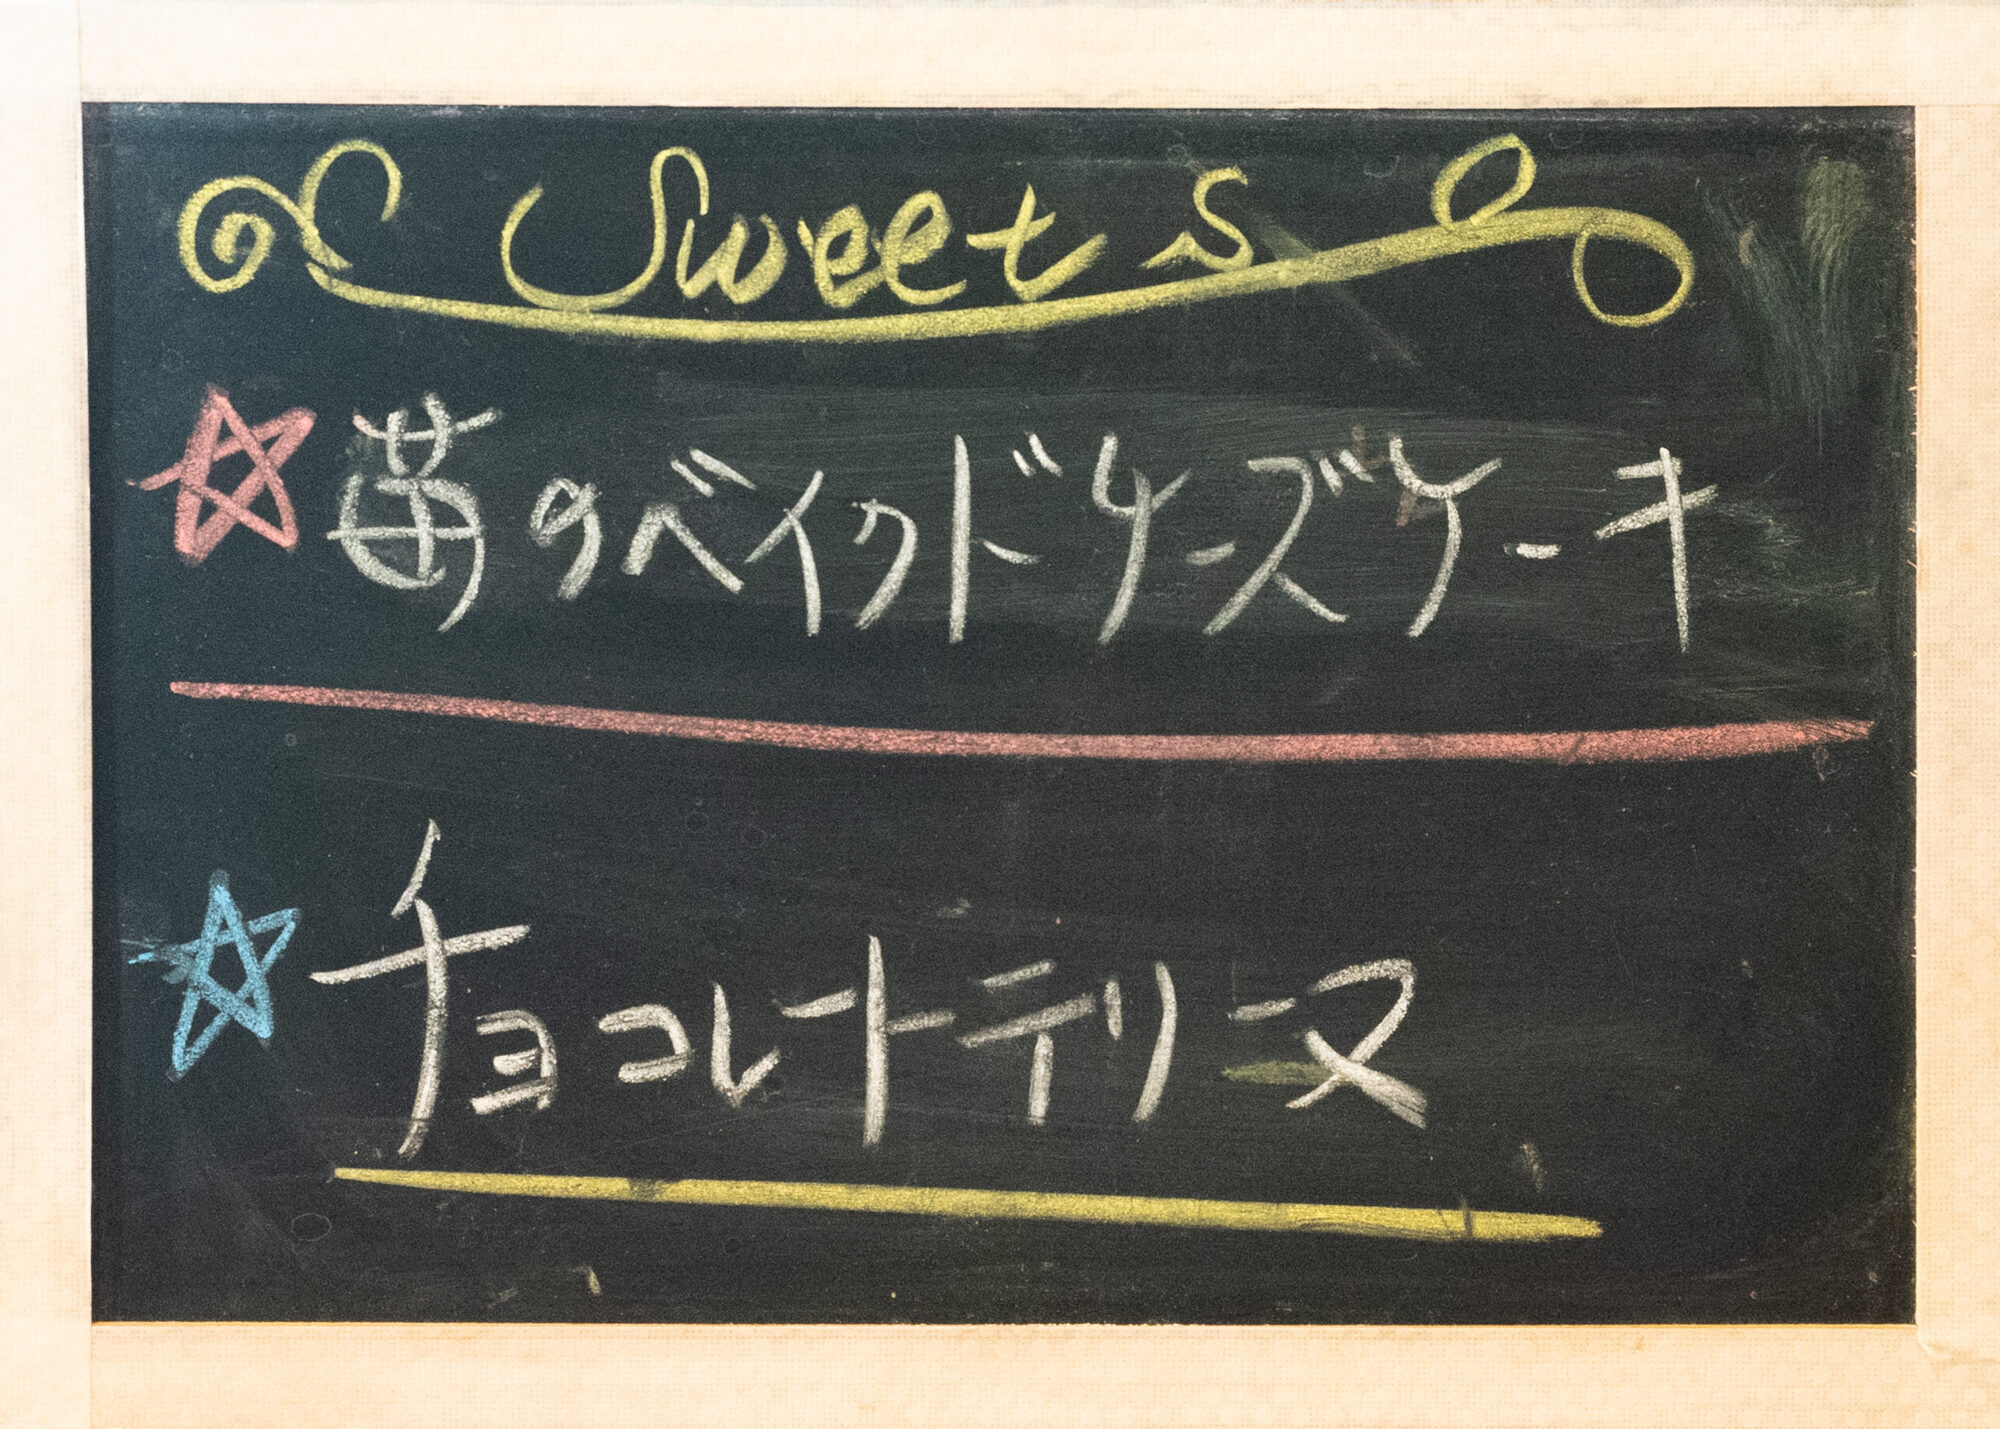 Sweets
苺のベイクドチーズケーキ
チョコレートテリーヌ